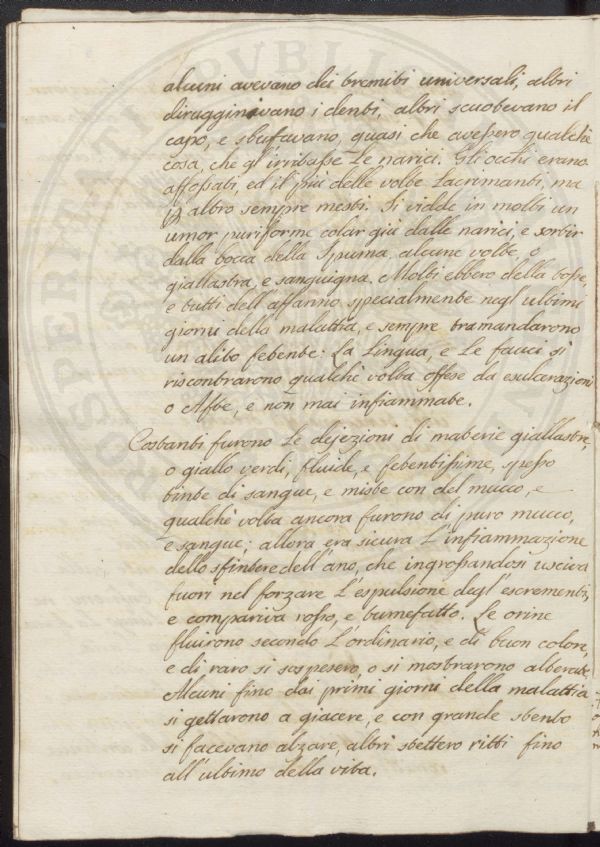 alcuni avevano dei tremiti universali, altri
dirugginivano i denti, altri scuotevano il
capo, e sbufavano, quasi che avessero qualche
cosa, che gl'irritasse Le narici. Gli occhi erano
affossati, ed il più delle volte Lacrimanti, ma
altro sempre mesti. Si vidde in molti un
umor puriforme colar giù dalle narici, e sortir
dalla bocca della Spuma, alcune volte, e
giallastra, e sanguigna. Molti ebbero della tosse,
e tutti dell'affanno specialmente negl'ultimi
giorni della malattia, e sempre tramandarono
un alito fetente: La Lingua, e Le fauci si
riscontrarono qualche volta offese da esulcerazioni
o Afte, e non mai infiammate.
Costanti furono Le dejezioni di materie giallastre,
o giallo verdi, fluide, e fetentissime, spesso
tinte di sangue, e miste con del mucco, e
qualche volta ancora furono di puro mucco,
e sangue; allora era sicura L'infiammazione
dello sfintere dell'ano, che ingrossandosi usciva
fuori nel forzare L'espulsione degl'escrementi,
e compariva rosso, e tumefatto. Le orine
fluirono secondo L'ordinario, e di buon colore,
e di raro si sospesero, o si mostrarono alterate.
Alcuni fino dai primi giorni della malattia
si gettarono a giacere, e con grande stento
si facevano alzare, altri stettero ritti fino
all'ultimo della vita.
PROSPERITATI PVBLICAE